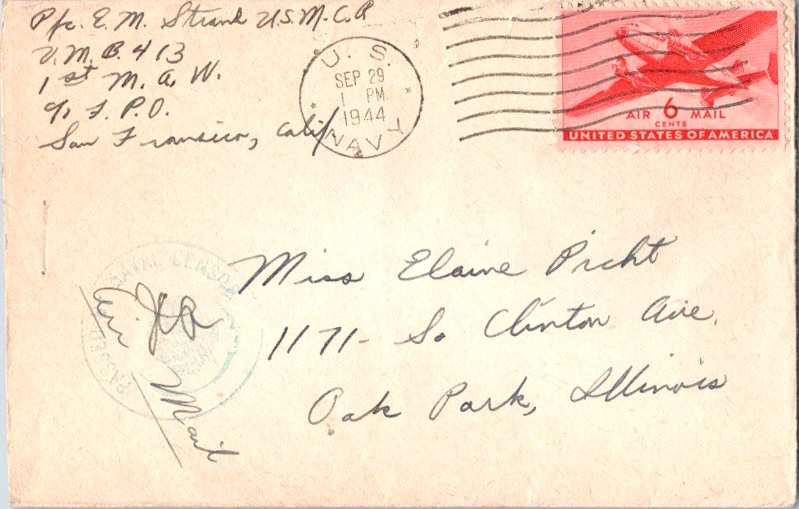 Pfc. E. M. Strand U.S.M.C.R
V.M.B. 413
1st M.A.W.
c/o F.P.O.
San Fransico, Calif
U. S.
SEP 29
1 PM
1944
NAVY
AIR 6 MAIL
CENTS
UNITED STATES OF AMERICA
PASSED NAVAL CENSOR
Air Mail
Miss Elaine Picht
1171- So Clinton Ave.
Oak Park, Illinois